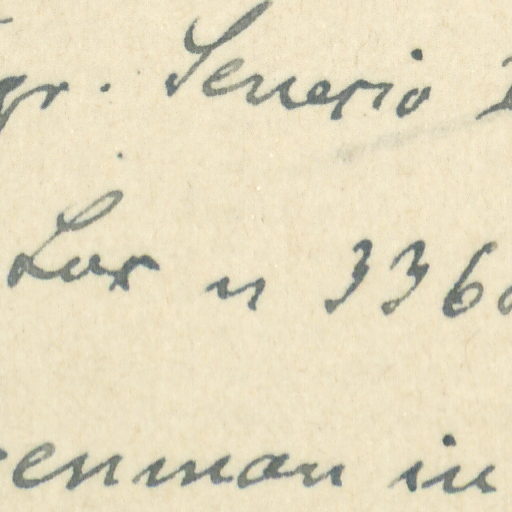 gr. Senerio
Lox n 336
enman in